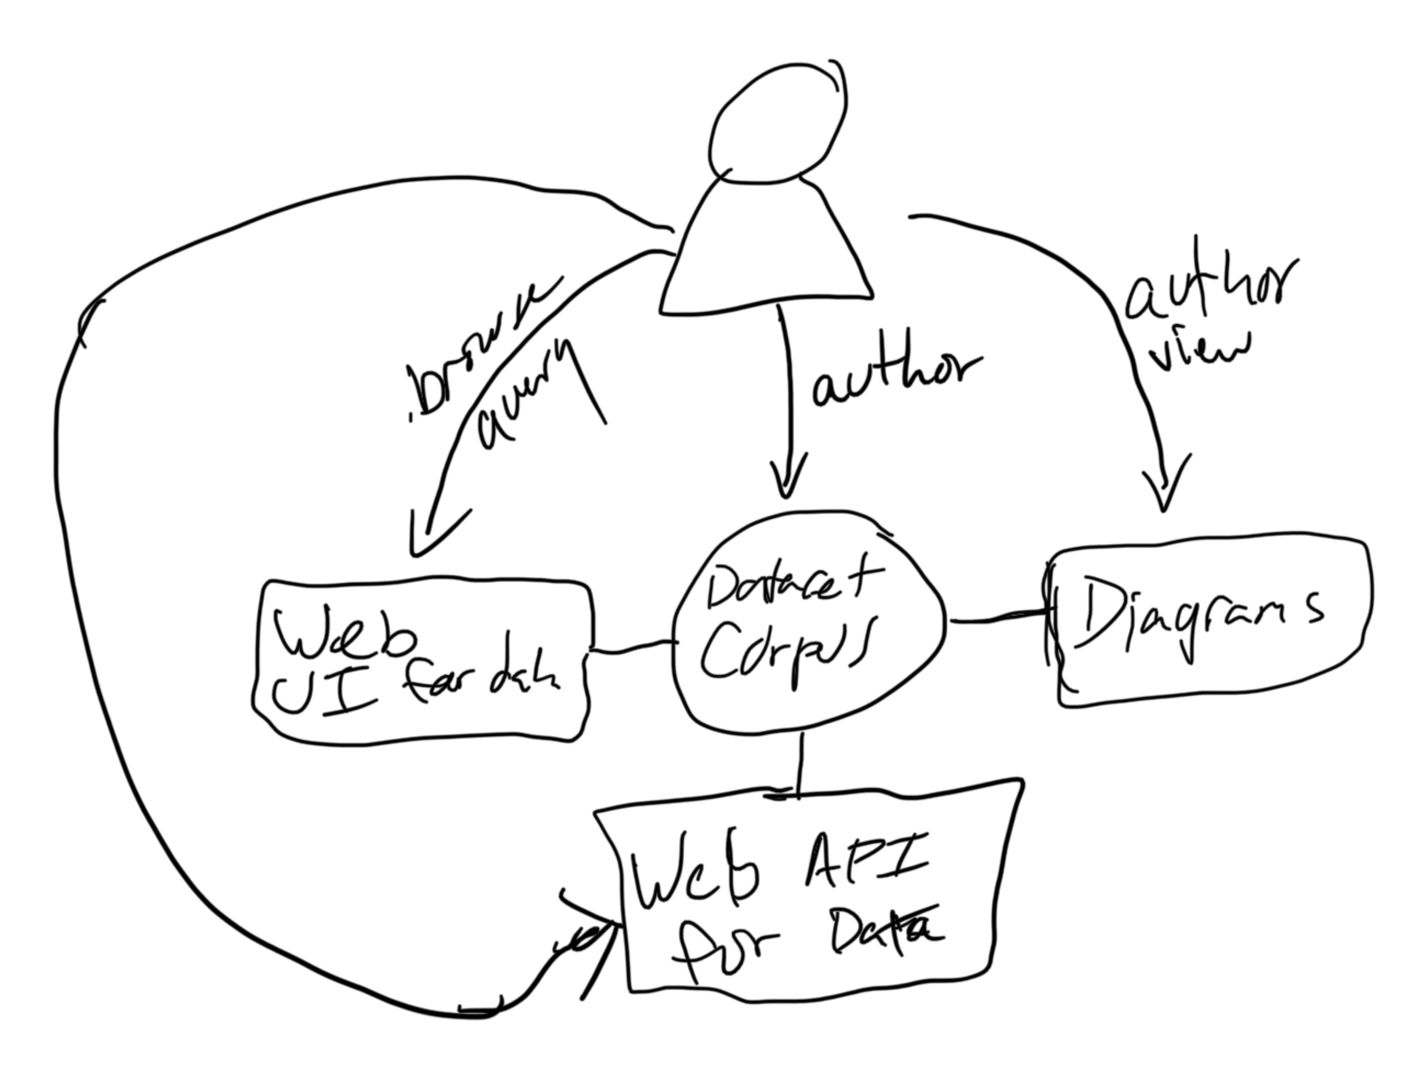 browse
query
author
author
view
Web
UI for data
Dataset
Corpus
Diagrams
Web API
for Data